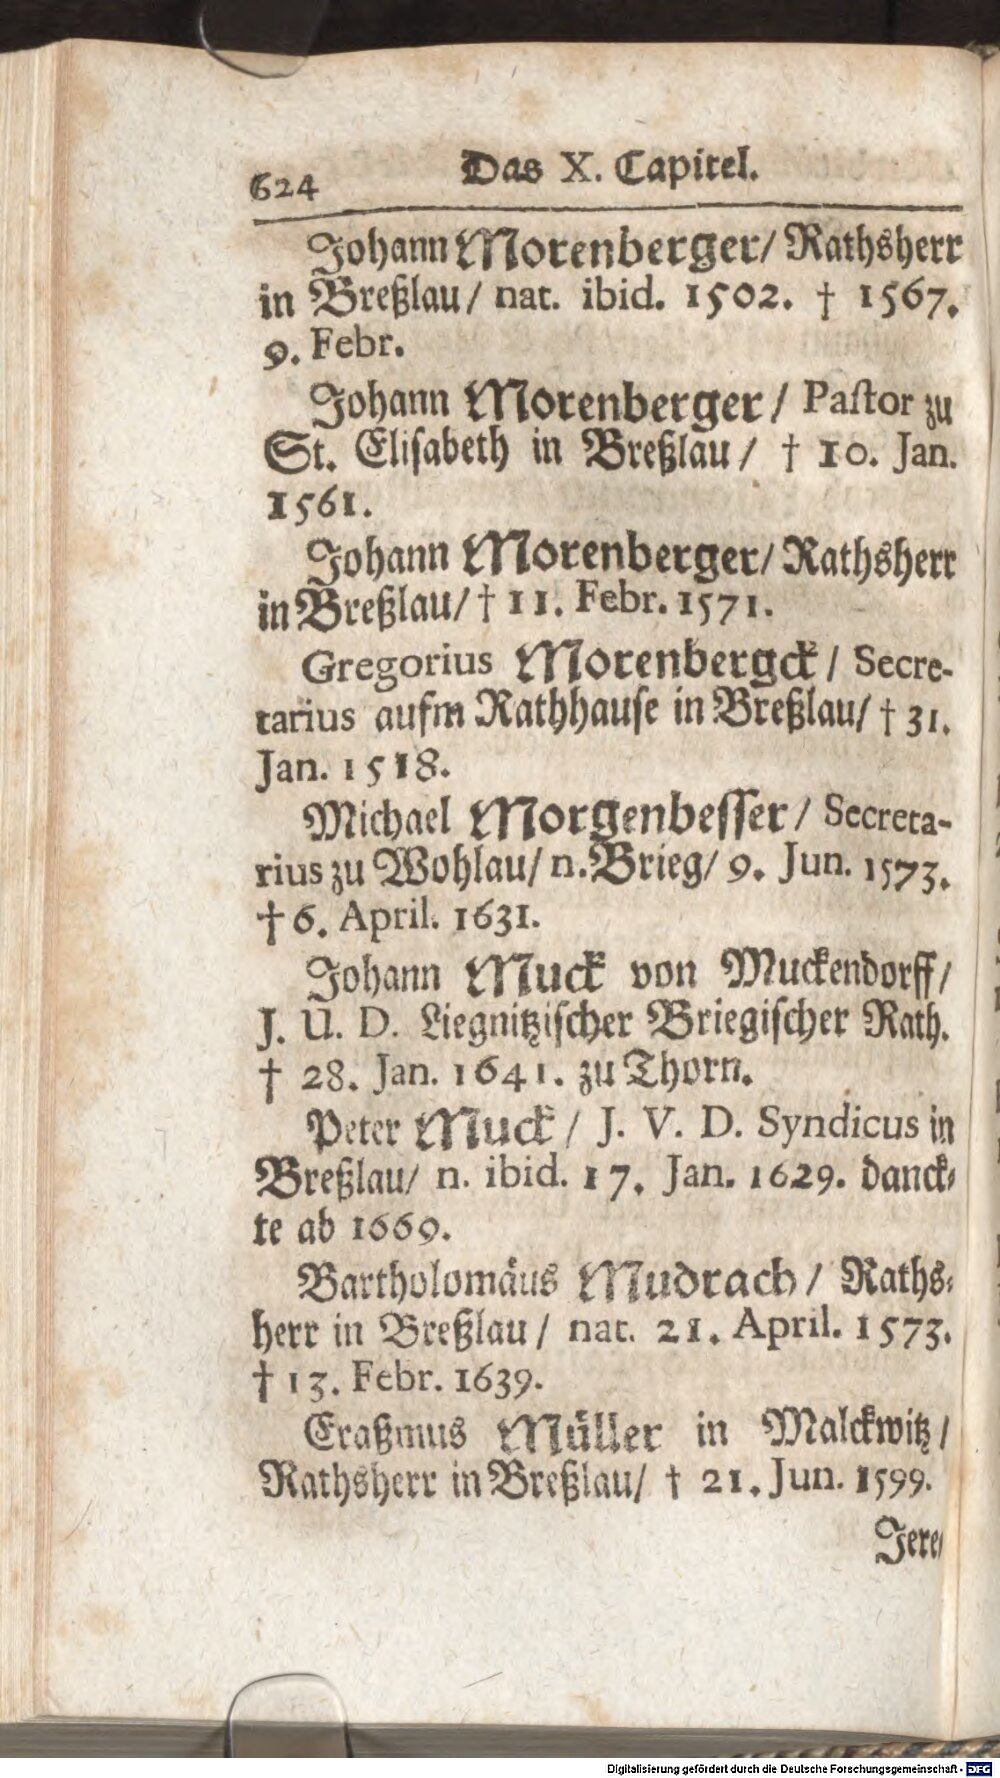 624 Das X. Capitel.
Johann Morenberger/ Rathsherr
in Breßlau/ nat. ibid. 1502. † 1567.
9. Febr.
Johann Morenberger/ Pastor zu
St. Elisabeth in Breßlau/ † 10. Jan.
1561.
Johann Morenberger/ Rathsherr
in Breßlau/ † 11. Febr. 1571.
Gregorius Morenbergck/ Secre-
tarius aufm Rathhause in Breßlau/ † 31.
Jan. 1518.
Michael Morgenbesser/ Secreta-
rius zu Wohlau/ n. Brieg/ 9. Jun. 1573.
† 6. April. 1631.
Johann Muck von Muckendorff/
J. U. D. Liegnitzischer Briegischer Rath.
† 28. Jan. 1641. zu Thorn.
Peter Muck/ J. V. D. Syndicus in
Breßlau/ n. ibid. 17. Jan. 1629. danck-
te ab 1669.
Bartholomäus Mudrach/ Raths-
herr in Breßlau/ nat. 21. April. 1573.
† 13. Febr. 1639.
Eraßmus Müller in Malckwitz/
Rathsherr in Breßlau/ † 21. Jun. 1599.
Jere-
Digitalisierung gefördert durch die Deutsche Forschungsgemeinschaft - DFG